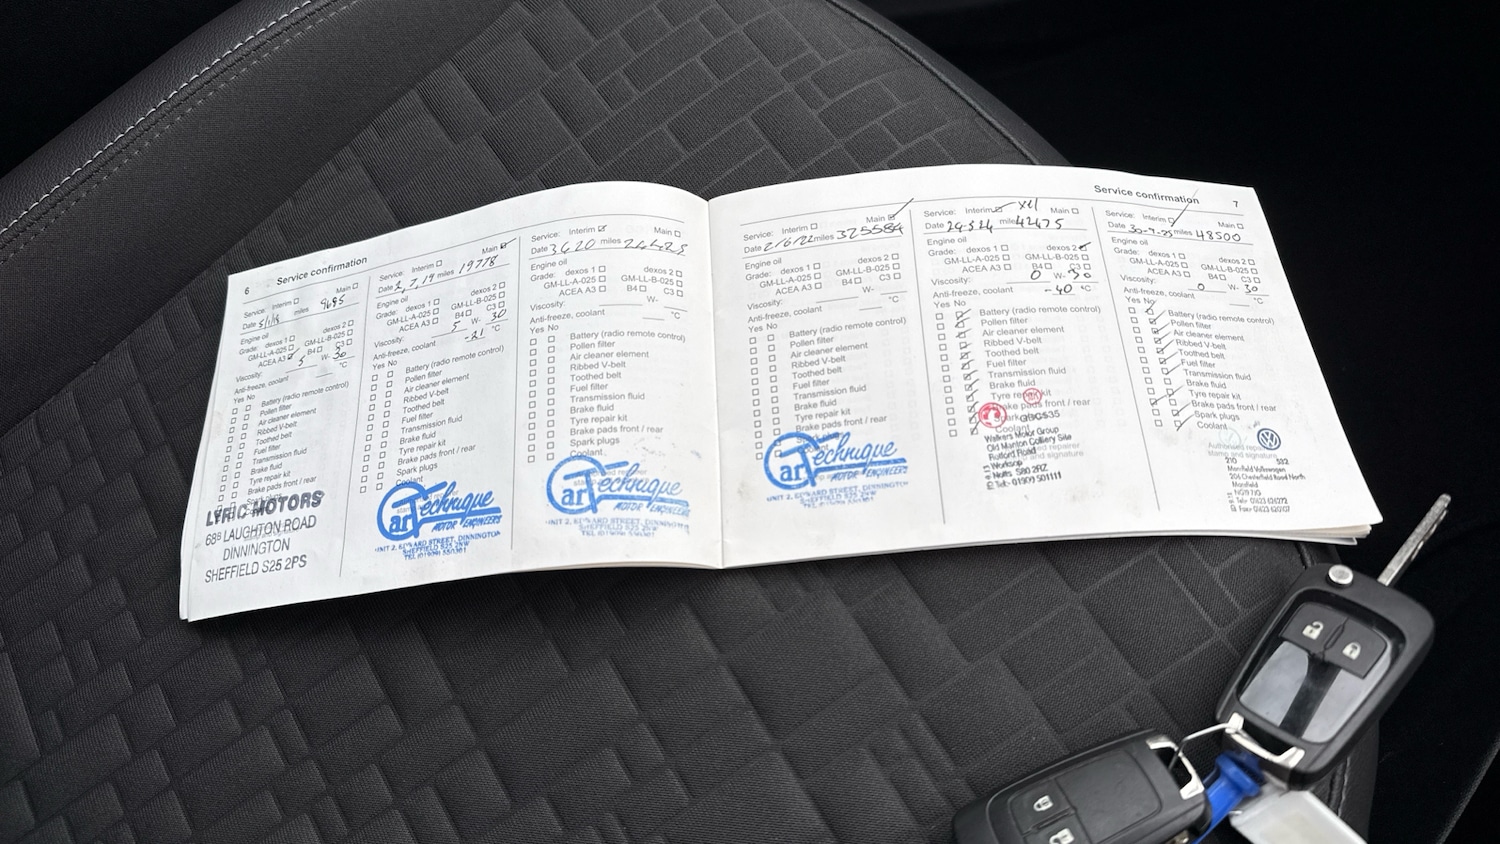 6 Service confirmation
Service: Interim Main
Date 5/1/18 miles 9685
Engine oil
Grade: dexos 1 dexos 2
GM-LL-A-025 GM-LL-B-025
ACEA A3 B4 C3
Viscosity: 5 W- 30
Anti-freeze, coolant °C
Yes No
Battery (radio remote control)
Pollen filter
Air cleaner element
Ribbed V-belt
Toothed belt
Fuel filter
Transmission fluid
Brake fluid
Tyre repair kit
Brake pads front / rear
LYRIC MOTORS
68B LAUGHTON ROAD
DINNINGTON
SHEFFIELD S25 2PS
Service: Interim Main
Date 2,7,19 miles 19778
Engine oil
Grade: dexos 1 dexos 2
GM-LL-A-025 GM-LL-B-025
ACEA A3 B4 C3
Viscosity: 5 W- 30
Anti-freeze, coolant -21 °C
Yes No
Battery (radio remote control)
Pollen filter
Air cleaner element
Ribbed V-belt
Toothed belt
Fuel filter
Transmission fluid
Brake fluid
Tyre repair kit
Brake pads front / rear
Spark plugs
Coolant
arTechnique
MOTOR ENGINEERS
UNIT 2, EDWARD STREET, DINNINGTON
SHEFFIELD S25 2NW
TEL (01909) 550301
Service: Interim Main
Date 3620 miles
Engine oil
Grade: dexos 1 dexos 2
GM-LL-A-025 GM-LL-B-025
ACEA A3 B4 C3
Viscosity: W-
Anti-freeze, coolant °C
Yes No
Battery (radio remote control)
Pollen filter
Air cleaner element
Ribbed V-belt
Toothed belt
Fuel filter
Transmission fluid
Brake fluid
Tyre repair kit
Brake pads front / rear
Spark plugs
Coolant
arTechnique
MOTOR ENGINEERS
UNIT 2, EDWARD STREET, DINNINGTON
SHEFFIELD S25 2NW
TEL (01909) 550301
Service confirmation 7
Service: Interim Main
Date 2/6/22 miles
Engine oil
Grade: dexos 1 dexos 2
GM-LL-A-025 GM-LL-B-025
ACEA A3 B4 C3
Viscosity: W-
Anti-freeze, coolant °C
Yes No
Battery (radio remote control)
Pollen filter
Air cleaner element
Ribbed V-belt
Toothed belt
Fuel filter
Transmission fluid
Brake fluid
Tyre repair kit
Brake pads front / rear
Spark plugs
Coolant
arTechnique
MOTOR ENGINEERS
UNIT 2, EDWARD STREET, DINNINGTON
SHEFFIELD S25 2NW
Service: Interim Main
Date 29.5.24 miles 42475
Engine oil
Grade: dexos 1 dexos 2
GM-LL-A-025 GM-LL-B-025
ACEA A3 B4 C3
Viscosity: 0 W- 30
Anti-freeze, coolant -40 °C
Yes No
Battery (radio remote control)
Pollen filter
Air cleaner element
Ribbed V-belt
Toothed belt
Fuel filter
Transmission fluid
Brake fluid
Tyre repair kit
Brake pads front / rear
Coolant
Walkers Motor Group
Old Manton Colliery Site
Retford Road
Worksop
Notts S80 2RZ
Tel: 01909 501111
Service: Interim Main
Date 30-9-25 miles 48500
Engine oil
Grade: dexos 1 dexos 2
GM-LL-A-025 GM-LL-B-025
ACEA A3 B4 C3
Viscosity: 0 W- 30
Anti-freeze, coolant °C
Yes No
Battery (radio remote control)
Pollen filter
Air cleaner element
Ribbed V-belt
Toothed belt
Fuel filter
Transmission fluid
Brake fluid
Tyre repair kit
Brake pads front / rear
Spark plugs
Coolant
Authorised repairer
stamp and signature
Mansfield Volkswagen
206 Chesterfield Road North
Mansfield